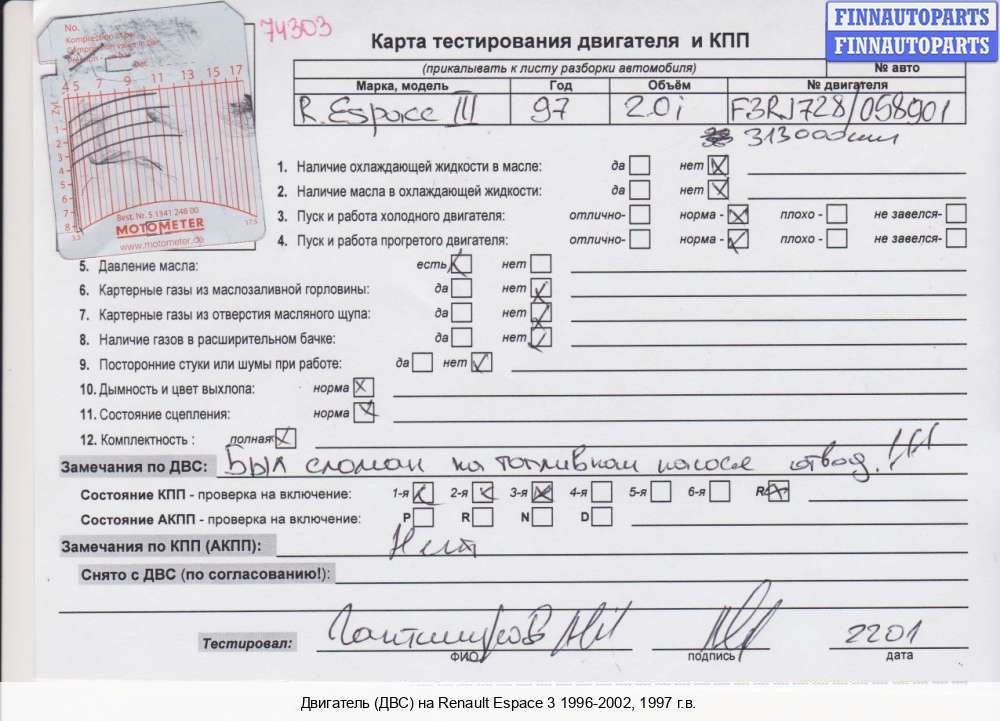 FINNAUTOPARTS
FINNAUTOPARTS
74303
Карта тестирования двигателя и КПП
(прикалывать к листу разборки автомобиля)
№ авто
Марка, модель Год Объём № двигателя
R. Espace III 97 2.0i F3RJ728/058901
313000км
No.
4 5 7 9 11 13 15 17
Zyl.
1
2
3
4
5
6
7
8
3.5 17.5
Best. Nr. 5 1341 248 00
MOTOMETER
www.motometer.de
1. Наличие охлаждающей жидкости в масле: да нет
2. Наличие масла в охлаждающей жидкости: да нет
3. Пуск и работа холодного двигателя: отлично- норма - плохо - не завелся-
4. Пуск и работа прогретого двигателя: отлично- норма - плохо - не завелся-
5. Давление масла: есть нет
6. Картерные газы из маслозаливной горловины: да нет
7. Картерные газы из отверстия масляного щупа: да нет
8. Наличие газов в расширительном бачке: да нет
9. Посторонние стуки или шумы при работе: да нет
10. Дымность и цвет выхлопа: норма
11. Состояние сцепления: норма
12. Комплектность : полная
Замечания по ДВС: Был сломан на топливном насосе отвод!!!
Состояние КПП - проверка на включение: 1-я 2-я 3-я 4-я 5-я 6-я R
Состояние АКПП - проверка на включение: P R N D
Замечания по КПП (АКПП): Нет
Снято с ДВС (по согласованию!):
Тестировал: 2201
ФИО подпись дата
Двигатель (ДВС) на Renault Espace 3 1996-2002, 1997 г.в.